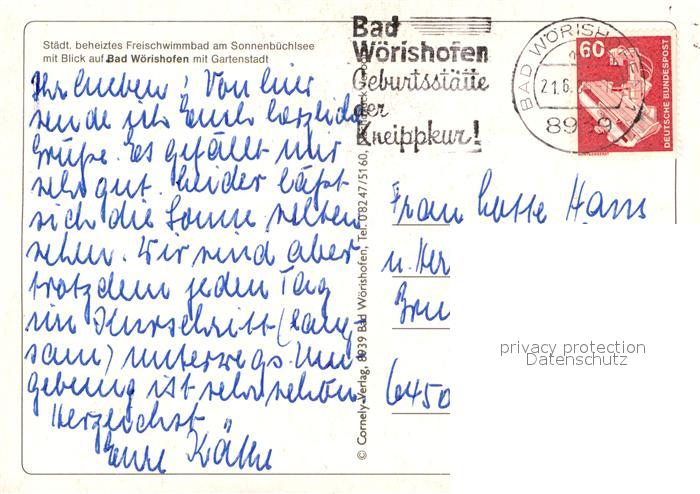 Städt. beheiztes Freischwimmbad am Sonnenbüchlsee
mit Blick auf Bad Wörishofen mit Gartenstadt
Ihr Lieben! Von hier
sende ich Euch herzliche
Grüße. Es gefällt mir
sehr gut. Leider läßt
sich die Sonne selten
sehen. Wir sind aber
trotzdem jeden Tag
im Kurschritt (lang
sam) unterwegs. Um
gebung ist sehr schön
Herzlichst
Eure Käthe
© Cornely-Verlag, 8939 Bad Wörishofen, Tel. 08247/5160,
Bad
Wörishofen
Geburtsstätte
der
Kneippkur!
BAD WÖRISH
21.6.
8939
60
DEUTSCHE BUNDESPOST
Frau Hans
u.
6450
privacy protection
Datenschutz